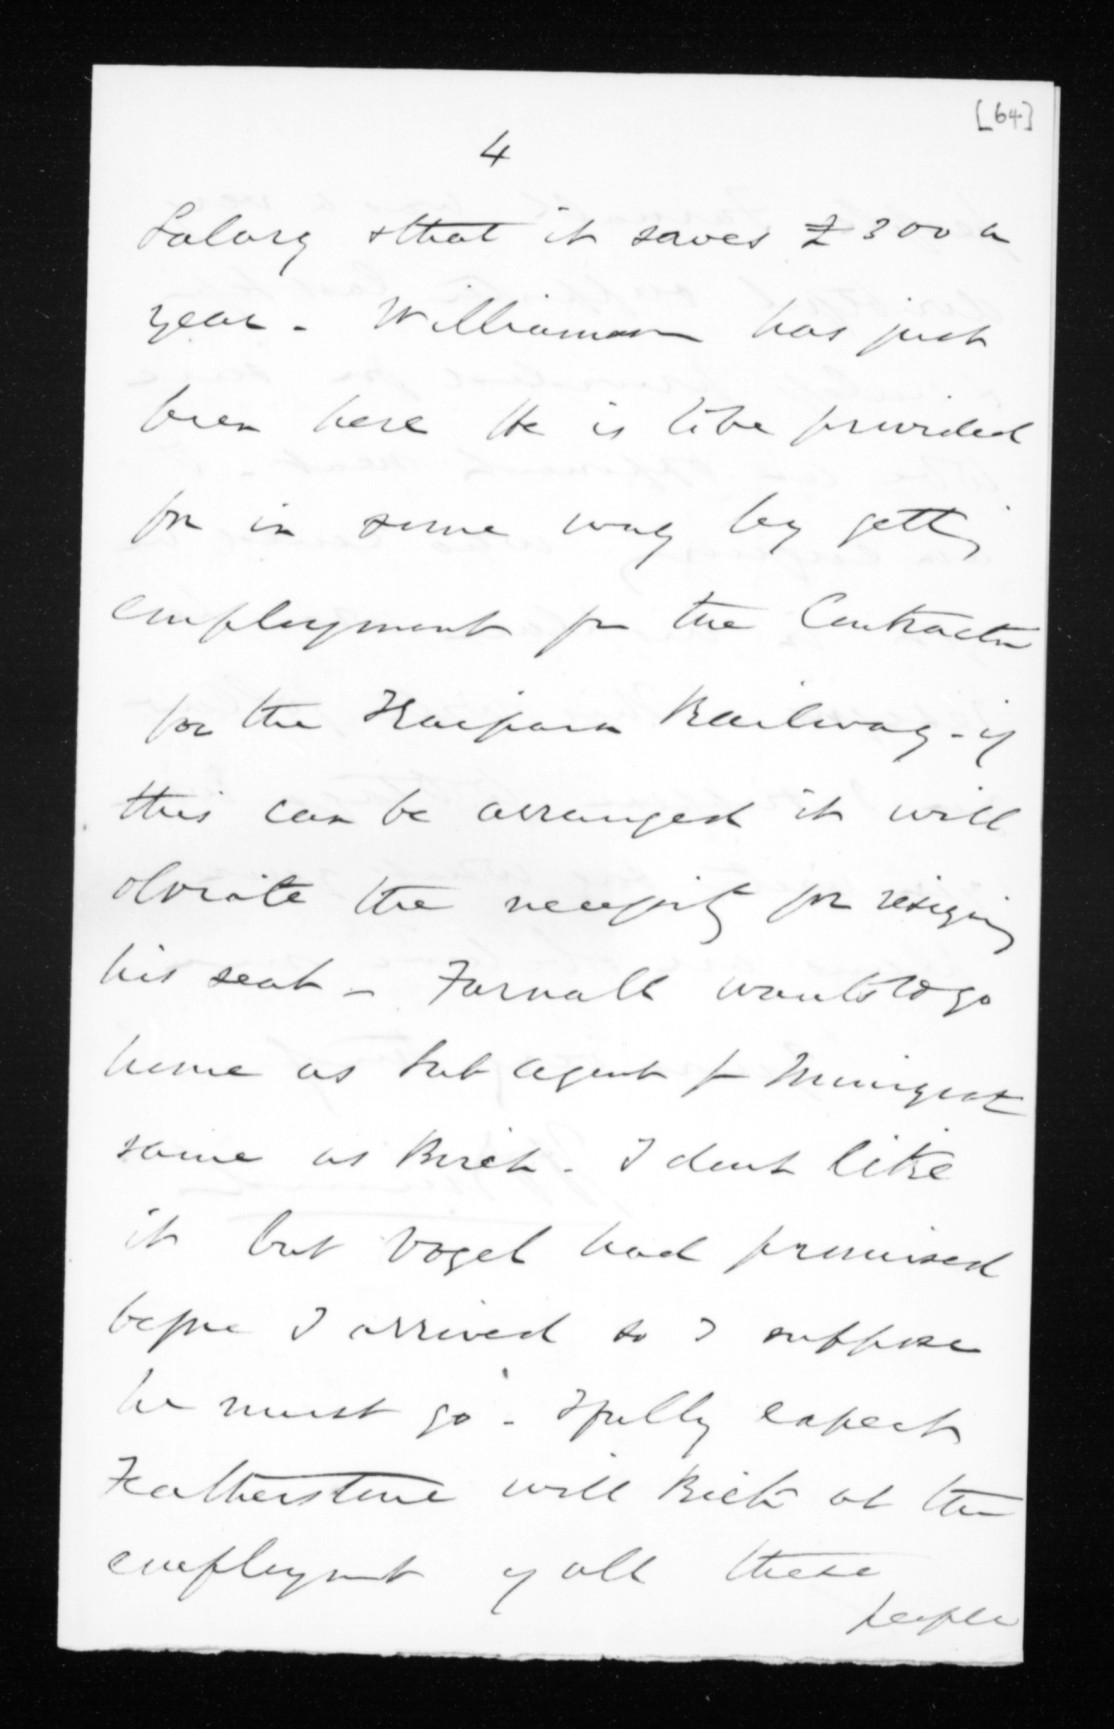 [64]
4
Salary & that it saves £300 a
year - Williamson has just
been here He is to be provided
for in some way by getting
employment fr the Contractor
for the Kaipara Railway - if
this can be arranged it will
obviate the necessity for resigning
his seat - Farnall wants to go
home as Sub agent fr Immigrat
same as Birch. I dont like
it but Vogel had promised
before I arrived so I suppose
he must go - I fully expect
Featherstone will Kick at the
employmt of all these
people